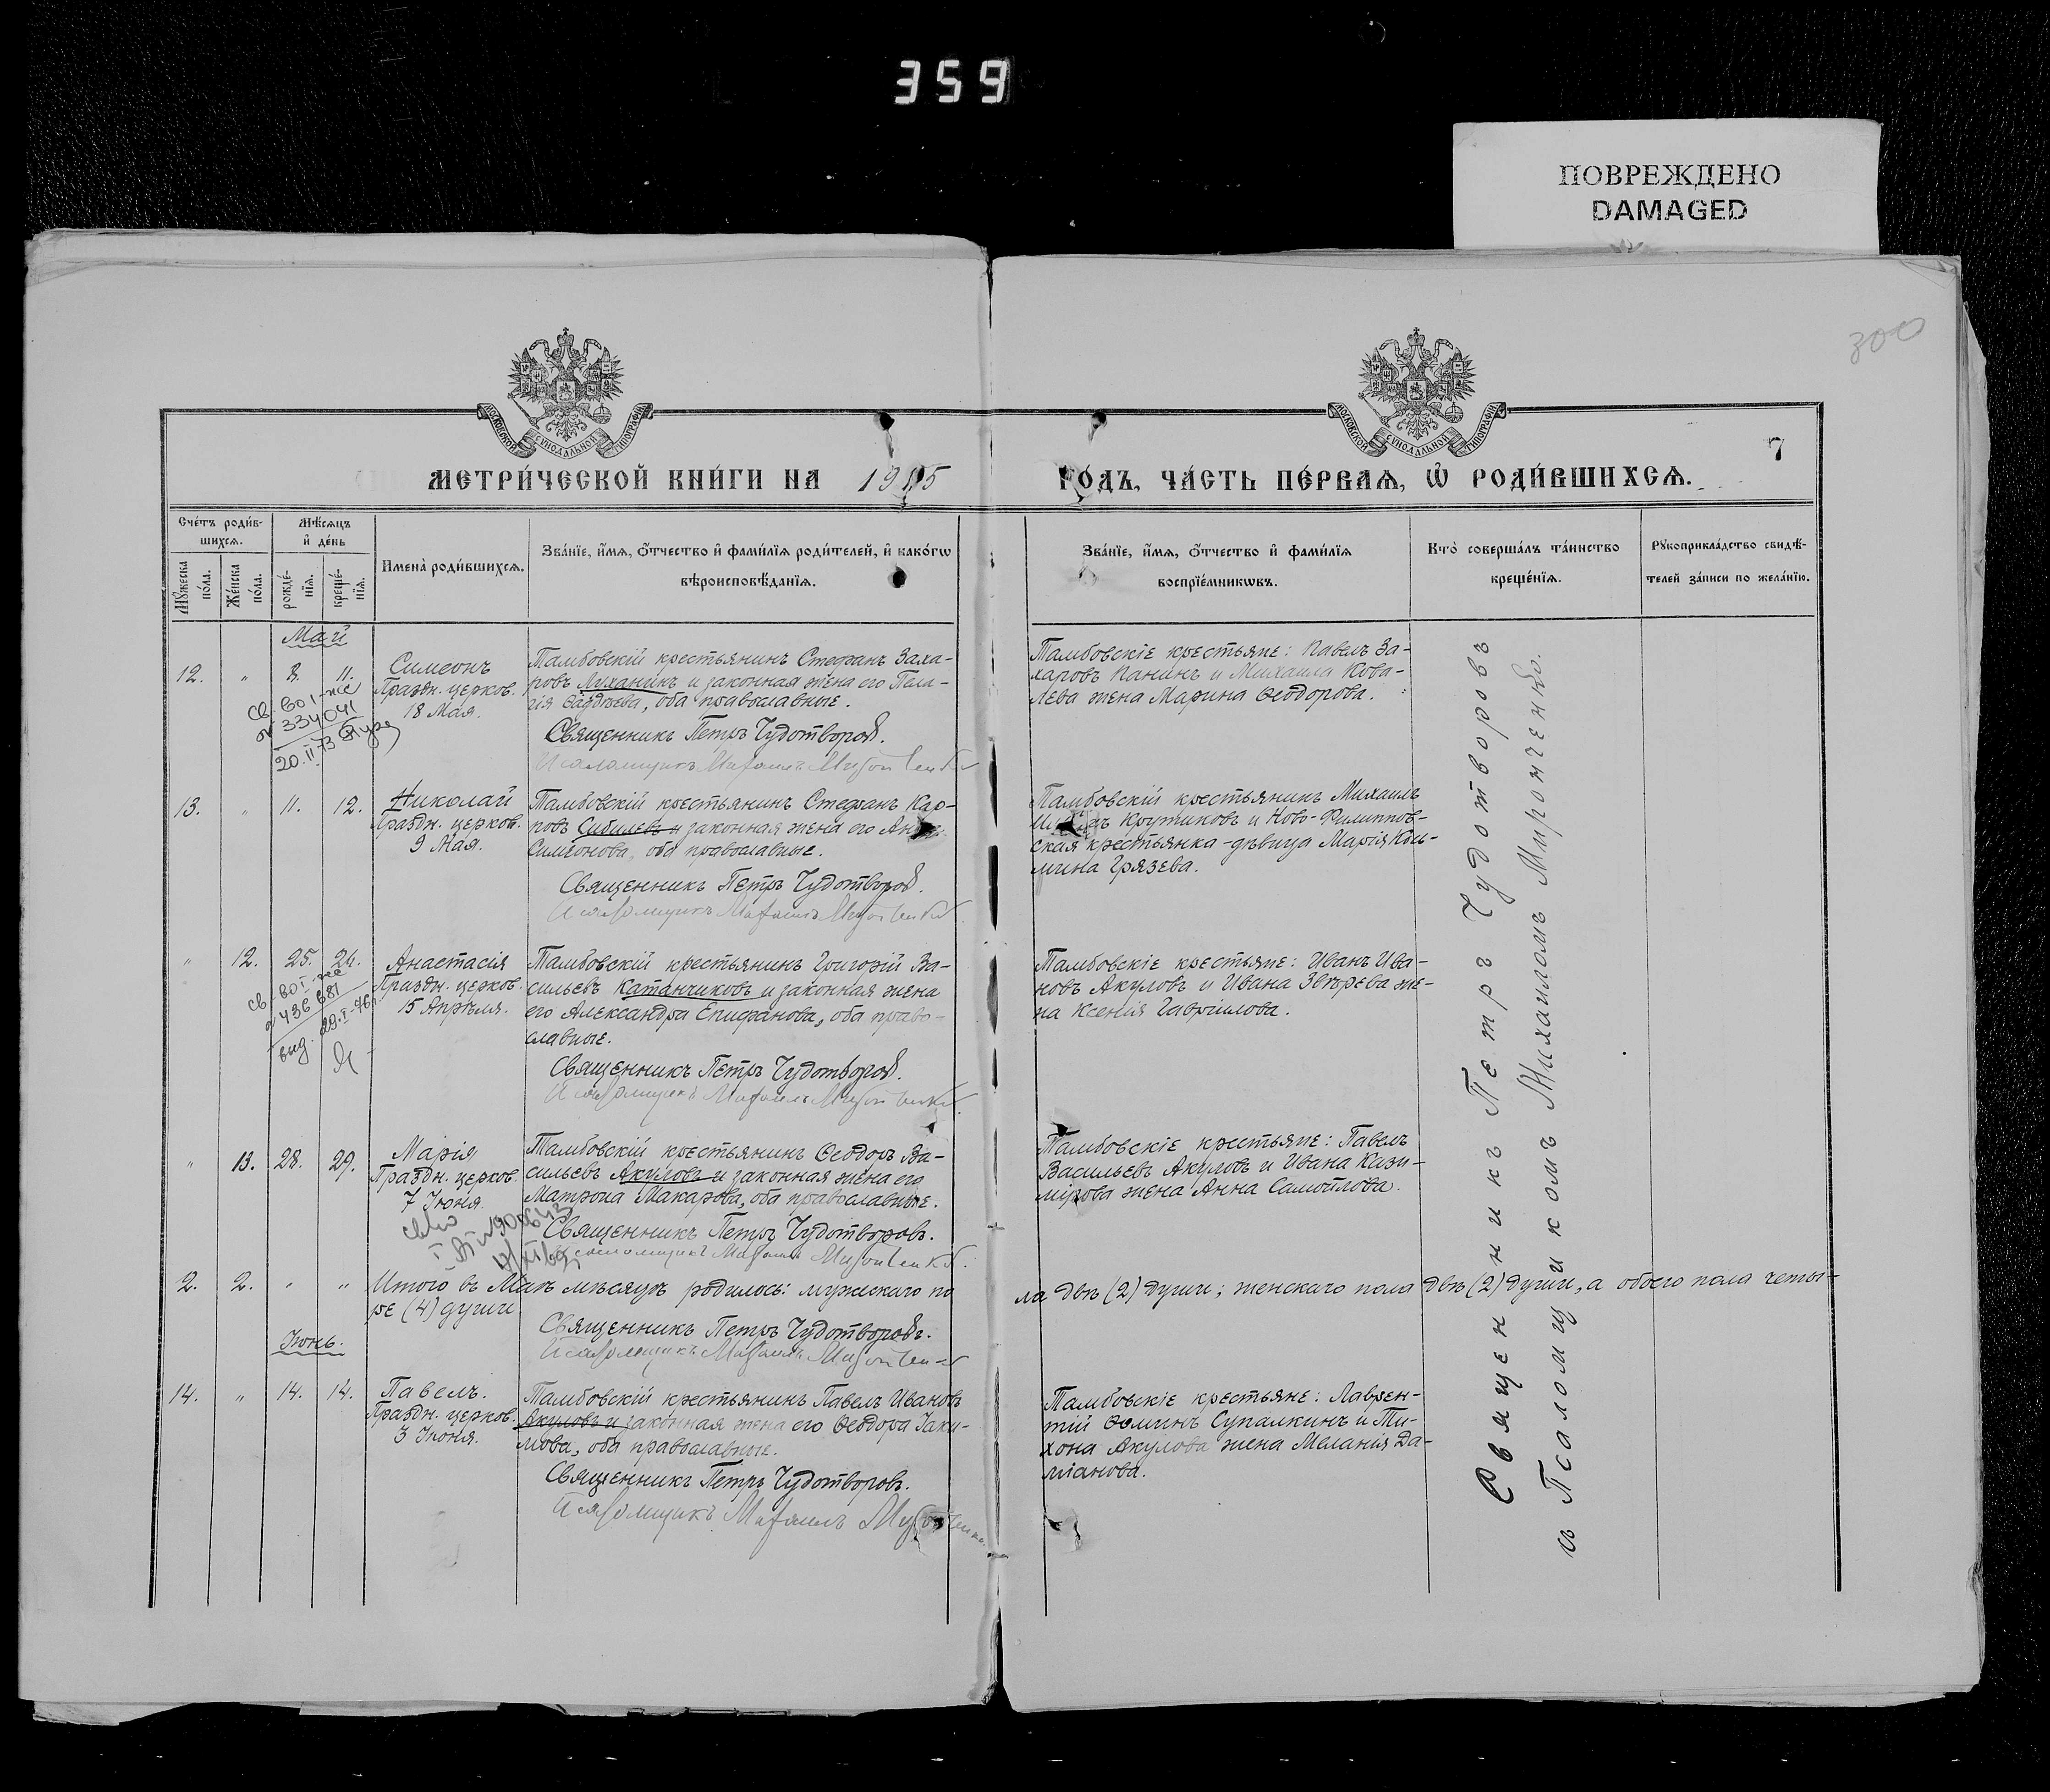 359
ПОВРЕЖДЕНО
DAMAGED
300
7
МОСКОВСКОЙ СУНОДАЛЬНОЙ ТИПОГРАФІИ
МОСКОВСКОЙ СУНОДАЛЬНОЙ ТИПОГРАФІИ
МЕТРИ́ЧЕСКОЙ КНИ́ГИ НА 1915
ГО́ДЪ, ЧА́СТЬ ПЕ́РВАѦ, Ѡ҆ РОДИ́ВШИХСѦ.
Сче́тъ роди́в-
шихсѧ.
Мѣ́сѧцъ
и҆ де́нь
Мꙋ́жеска
по́ла.
Же́нска
по́ла.
рожде́-
нїѧ.
креще́-
нїѧ.
И҆мена̀ роди́вшихсѧ.
Зва́нїе, и҆́мѧ, ѻ҆́тчество и҆ фами́лїѧ роди́телей, и҆ како́гѡ
вѣроисповѣ́данїѧ.
Зва́нїе, и҆́мѧ, ѻ҆́тчество и҆ фами́лїѧ
воспрїе́мникѡвъ.
Кто̀ соверша́лъ та́инство
креще́нїѧ.
Рꙋкоприкла́дство свидѣ́-
телей за́писи по жела́нїю.
Май
12. " 8. 11. Симеонъ
Праздн. церков.
18 Мая.
Тамбовскій крестьянинъ Стефанъ Заха-
ровъ Муханинъ и законная жена его Пела-
гія Фаддѣева, оба православные.
Священникъ Петръ Чудотворов.
Псаломщикъ Михаилъ Миронченко
Тамбовскіе крестьяне: Павелъ За-
харовъ Панинъ и Михаила Кова-
лева жена Марина Ѳеодорова.
св-во I-
334041
20.II.73
13. " 11. 12. Николай
Праздн. церков.
9 Мая.
Тамбовскій крестьянинъ Стефанъ Кар-
повъ Сибилевъ и законная жена его
Симеонова, оба православные.
Священникъ Петръ Чудотворов.
Псаломщикъ Михаилъ Миронченко.
Тамбовскій крестьянинъ Михаилъ
Крутиковъ и Ново-Филиппов-
ская крестьянка-дѣвица Марія Кось-
мина Грязева.
" 12. 25. 26. Анастасія
Праздн. церков.
15 Апрѣля.
Тамбовскій крестьянинъ Григорій Ва-
сильевъ Катанчиковъ и законная жена
его Александра Епифанова, оба право-
славные.
Священникъ Петръ Чудотворов.
Псаломщикъ Михаилъ Миронченко.
Тамбовскіе крестьяне: Иванъ Ива-
новъ Акуловъ и Ивана Звѣрева же-
на Ксенія Гавріилова.
св-во I-
436681
выд. 29.I-76г.
" 13. 28. 29. Марія
Праздн. церков.
7 Іюня.
Тамбовскій крестьянинъ Ѳеодоръ Ва-
сильевъ Акуловъ и законная жена его
Матрона Макарова, оба православные.
Священникъ Петръ Чудотворовъ.
Псаломщикъ Михаилъ Миронченко.
Тамбовскіе крестьяне: Павелъ
Васильевъ Акуловъ и Ивана Кази-
мірова жена Анна Самойлова.
2. 2. " " Итого въ Маѣ мѣсяцѣ родилось: мужскаго по
ла двѣ (2) души; женскаго пола двѣ (2) души, а обоего пола четы-
ре (4) души
Священникъ Петръ Чудотворовъ.
Псаломщикъ Михаилъ Миронченко
Іюнь.
14. " 14. 14. Павелъ.
Праздн. церков.
3 Іюня.
Тамбовскій крестьянинъ Павелъ Ивановъ
Акуловъ и законная жена его Ѳеодора Іаки-
мова, оба православные.
Священникъ Петръ Чудотворовъ.
Псаломщикъ Михаилъ Миронченко.
Тамбовскіе крестьяне: Лаврен-
тій Ѳоминъ Супалкинъ и Ти-
хона Акулова жена Меланія Да-
міанова.
Священникъ Петръ Чудотворовъ
съ Псаломщикомъ Михаиломъ Миронченко.